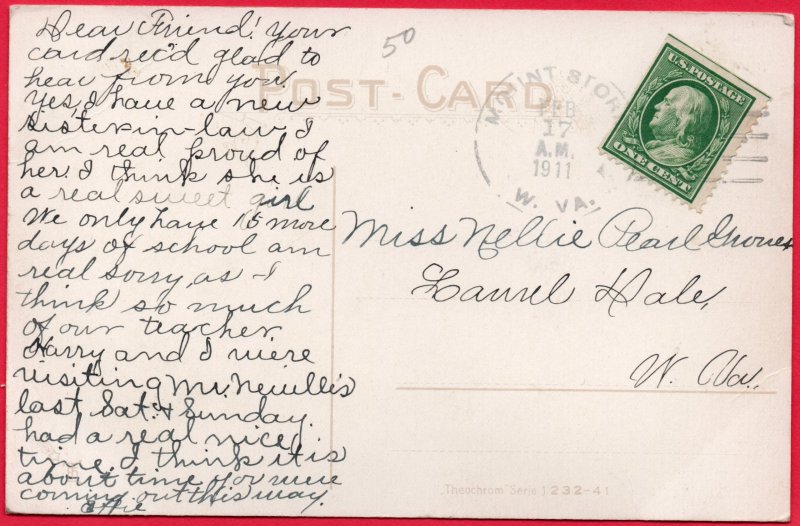 Dear Friend! Your
card rec'd glad to
hear from you.
Yes, I have a new
sister-in-law I
am real proud of
her. I think she is
a real sweet girl
We only have 15 more
days of school am
real sorry, as I
think so much
of our teacher
Harry and I were
visiting Mr.
last Sat. & Sunday.
had a real nice
time. I think it is
about time you were
coming out this way.
Effie
50
POST-CARD
MOUNT STOR
FEB
17
A.M.
1911
W. VA.
U.S. POSTAGE
ONE CENT
Miss Nellie Pearl
Laurel Dale,
W. Va.,
"Theochrom" Serie 1232-41